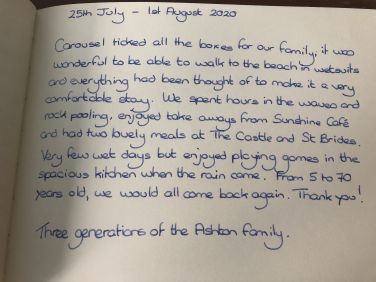 25th July - 1st August 2020
Carousel ticked all the boxes for our family, it was
wonderful to be able to walk to the beach in wetsuits
and everything had been thought of to make it a very
comfortable stay. We spent hours in the waves and
rock pooling, enjoyed take aways from Sunshine Café
and had two lovely meals at The Castle and St Brides.
Very few wet days but enjoyed playing games in the
spacious kitchen when the rain came. From 5 to 70
years old, we would all come back again. Thank you!
Three generations of the Ashton family.